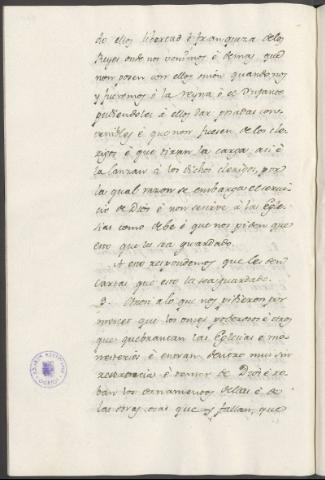 de ellos libertad é franqueza de los
Reyes onde nos venimos é demas que
non posen con ellos sinon quando nos
y fueremos ó la Reyna ó el Infante
pudiendoles á ellos dar posadas con-
venibles é que non fuesen de los cle-
rigos é que tiran la carga, asi é
la lanzan á los dichos clerigos, por
la qual razon se embarga el servi-
cio de Dios é non se sirve á las Egle-
sias como debe é que nos piden que
esto que les sea guardado.
A esto respondemos que les den
cartas que esto les sea guardado.
3. Otrosi a lo que nos pidieron por
merced que los omes poderosos é otros
que quebrantan las Eglesias é mo-
nesterios é entran dentro muy sin
reverencia é temor de Dios é ro-
ban los ornamentos dellas é de
las otras cosas que y fallan, que